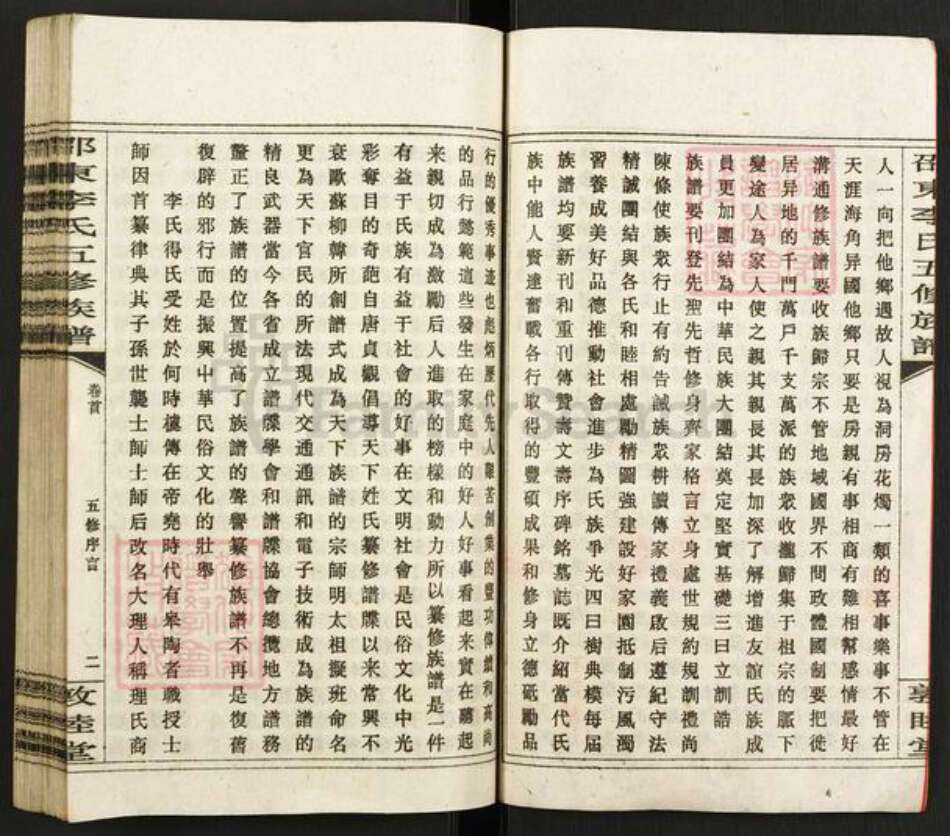 邵東李氏五修族譜
敦睦堂
人一向把他鄉遇故人視為洞房花燭一類的喜事樂事不管在
天涯海角异國他鄉只要是房親有事相商有難相幫感情最好
溝通修族譜要收族歸宗不管地域國界不問政體國制要把徙
居异地的千門萬戶千支萬派的族眾收攏歸集于祖宗的脈下
變途人為家人使之親其親長其長加深了解增進友誼氏族成
員更加團結為中華民族大團結奠定堅實基礎三曰立訓誥
族譜要刊登先聖先哲修身齊家格言立身處世規約規訓禮尚
陳條使族眾行止有約告誡族眾耕讀傳家禮義啟后遵紀守法
精誠團結與各氏和睦相處勵精圖強建設好家園抵制污風濁
習養成美好品德推動社會進步為氏族爭光四曰樹典模每届
族譜均要新刊和重刊傳贊壽文壽序碑銘墓誌既介紹當代氏
族中能人賢達奮戰各行取得的豐碩成果和修身立德砥勵品
行的優秀事迹也彪炳歷代先人艱苦創業的豐功偉績和高尚
的品行懿範這些發生在家庭中的好人好事看起來實在藹起
來親切成為激勵后人進取的榜樣和動力所以纂修族譜是一件
有益于氏族有益于社會的好事在文明社會是民俗文化中光
彩奪目的奇葩自唐貞觀倡導天下姓氏纂修譜牒以來常興不
衰歐蘇柳韓所創譜式成為天下族譜的宗師明太祖擬班命名
更為天下官民的所法現代交通通訊和電子技術成為族譜的
精良武器當今各省成立譜牒學會和譜牒協會總攬地方譜務
釐正了族譜的位置提高了族譜的聲譽纂修族譜不再是復舊
復辟的邪行而是振興中華民俗文化的壯舉
李氏得氏受姓於何時據傳在帝堯時代有皋陶者職授士
師因首纂律典其子孫世襲士師士師后改名大理人稱理氏商
邵東李氏五修族譜
卷首
五修序言
二
敦睦堂